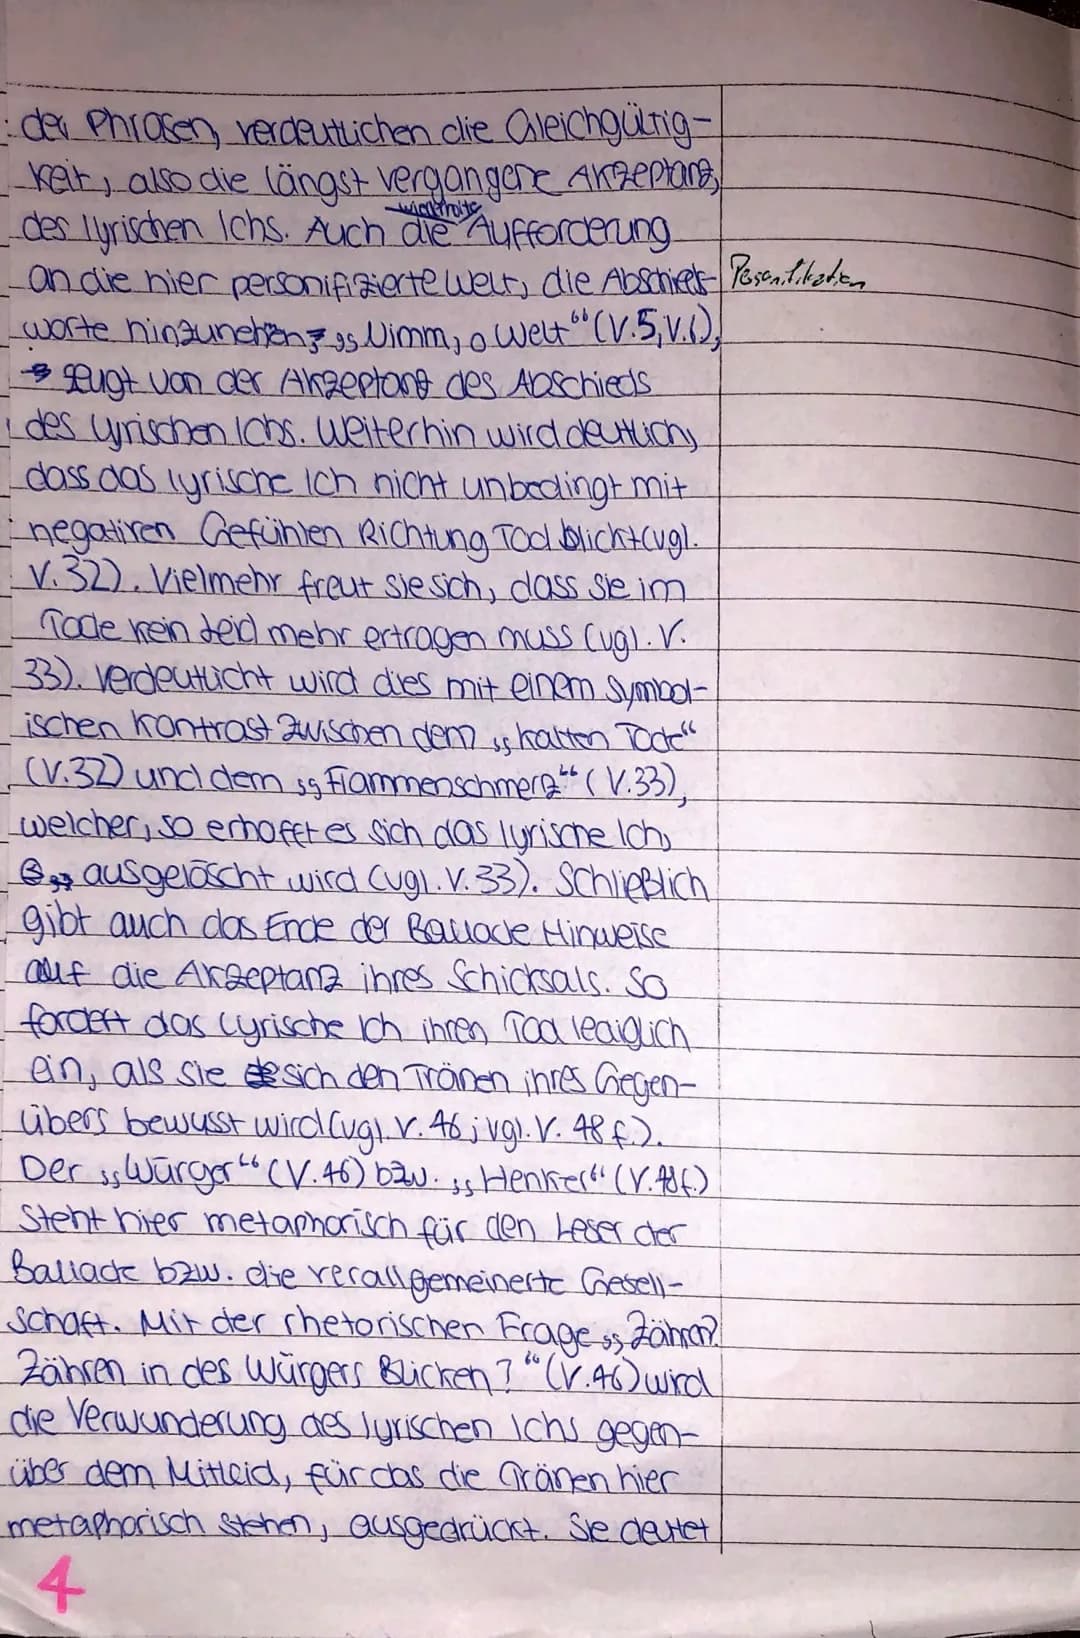 der Phrasen, verdeutlichen die Gleichgültig-
keit, also die längst vergangene Akzeptanz,
des lyrischen Ichs. Auch die wiederholte Aufforderung
an die hier personifizierte Welt, die Abschieds- Personifikation
worte hinzunehmen, „Nimm, o Welt“ (V.5, V.6),
zeugt von der Akzeptanz des Abschieds
des lyrischen Ichs. Weiterhin wird deutlich,
dass das lyrische Ich nicht unbedingt mit
negativen Gefühlen Richtung Tod blickt (vgl.
V.32). Vielmehr freut sie sich, dass sie im
Tode kein Leid mehr ertragen muss (vgl. V.
33). Verdeutlicht wird dies mit einem symbol-
ischen Kontrast zwischen dem „kalten Tode“
(V.32) und dem „Flammenschmerz“ (V.33),
welcher, so erhofft es sich das lyrische Ich,
ausgelöscht wird (vgl. V.33). Schließlich
gibt auch das Ende der Ballade Hinweise
auf die Akzeptanz ihres Schicksals. So
fordert das lyrische Ich ihren Tod lediglich
ein, als sie sich den Tränen ihres Gegen-
übers bewusst wird (vgl. V. 46; vgl. V. 48 f.).
Der „Würger“ (V.46) bzw. „Henker“ (V.48f.)
steht hier metaphorisch für den Leser der
Ballade bzw. die verallgemeinerte Gesell-
schaft. Mit der rhetorischen Frage „Zähren?
Zähren in des Würgers Blicken?“ (V.46) wird
die Verwunderung des lyrischen Ichs gegen-
über dem Mitleid, für das die Tränen hier
metaphorisch stehen, ausgedrückt. Sie deutet
4